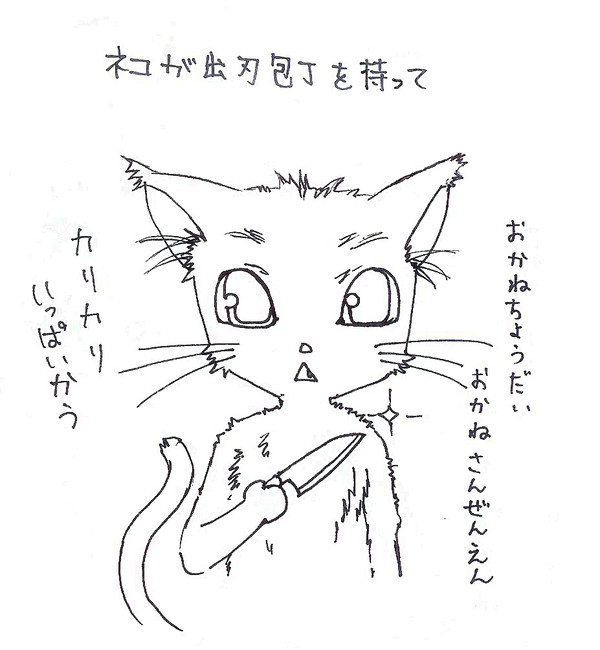 ネコが出刃包丁を持って
おかねちょうだい
おかねさんぜんえん
カリカリ
いっぱいかう